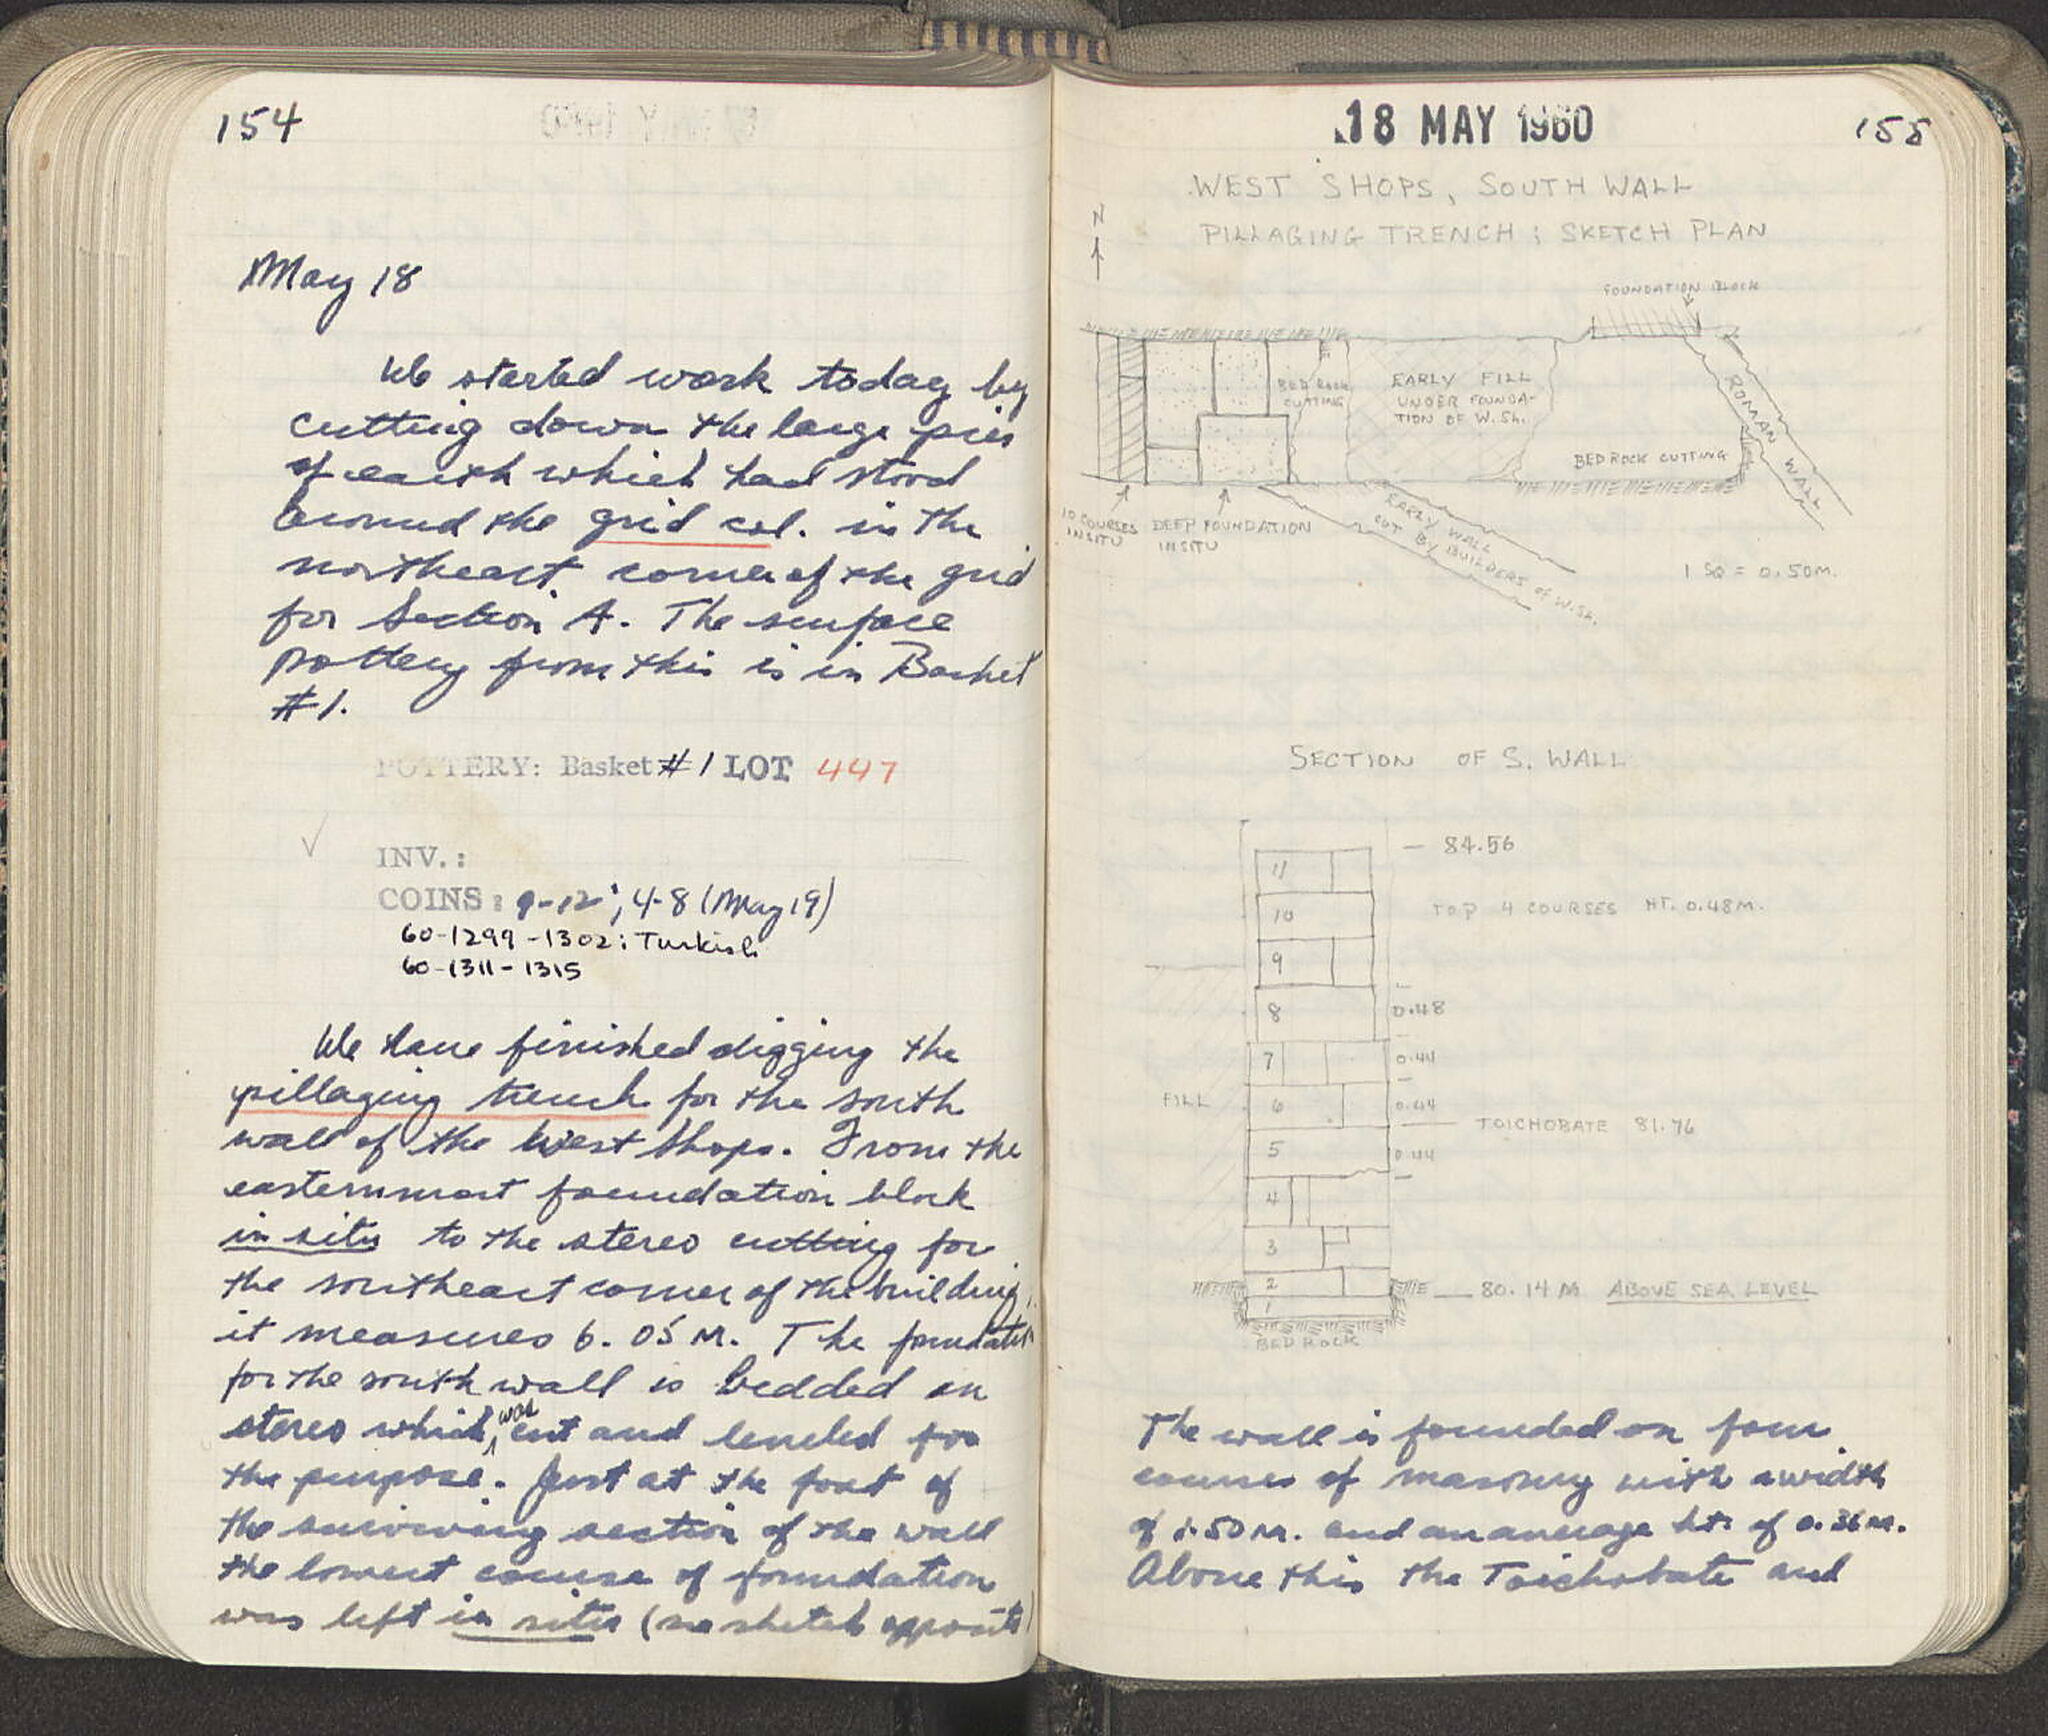 154
May 18
We started work today by
cutting down the large pier
of earth which had stood
around the grid col. in the
northeast corner of the grid
for Section A. The surface
pottery from this is in Basket
#1.
POTTERY: Basket #1 LOT 447
INV.:
COINS: 9-12; 4-8 (May 19)
60-1299-1302: Turkish
60-1311-1315
We have finished digging the
pillaging trench for the south
wall of the West Shops. From the
easternmost foundation block
in situ to the stereo cutting for
the southeast corner of the building,
it measures 6.05 M. The foundation
for the south wall is bedded on
stereo which was cut and leveled for
the purpose. Just at the foot of
the surviving section of the wall
the lowest course of foundation
was left in situ (see sketch opposite)
18 MAY 1960
155
WEST SHOPS, SOUTH WALL
PILLAGING TRENCH; SKETCH PLAN
N
FOUNDATION BLOCK
BEDROCK
CUTTING
EARLY FILL
UNDER FOUNDA-
TION OF W.Sh.
ROMAN WALL
BEDROCK CUTTING
10 COURSES
IN SITU
DEEP FOUNDATION
IN SITU
EARLY WALL
CUT BY BUILDERS OF W.Sh.
1 SQ = 0.50M.
SECTION OF S. WALL
11
84.56
10
TOP 4 COURSES HT. 0.48M.
9
8
0.48
7
0.44
FILL
6
0.44
TOICHOBATE 81.76
5
0.44
4
3
2
80.14 M ABOVE SEA LEVEL
1
BEDROCK
The wall is founded on four
courses of masonry with a width
of 1.50 M. and an average ht. of 0.36 M.
Above this the Toichobate and